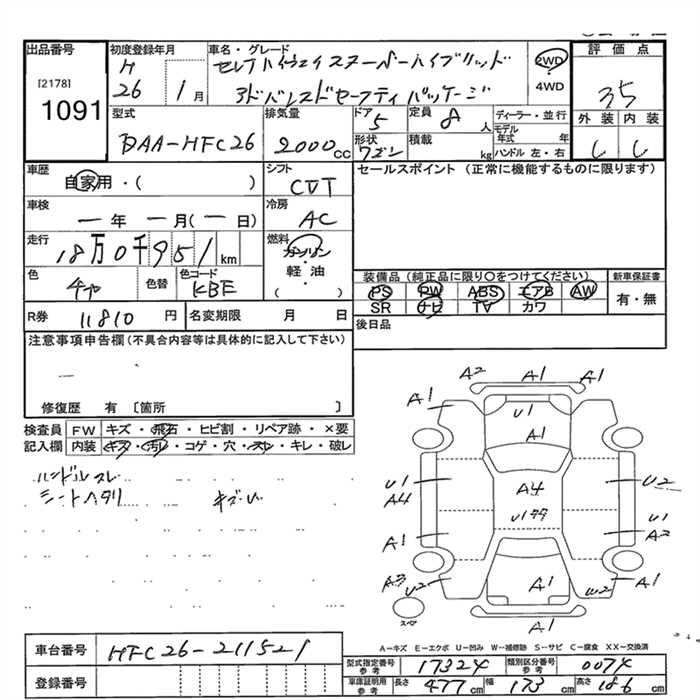 出品番号
[2178]
1091
初度登録年月
H
26 1月
車名・グレード
セレナハイウェイスターSハイブリッド
アドバンスドセーフティパッケージ
2WD
4WD
評価点
3.5
外装 内装
型式
DAA-HFC26
排気量
2000cc
ドア
5
形状
ワゴン
定員
8人
積載
kg
ディーラー・並行
モデル年式 年
ハンドル 左・右
車歴
自家用・( )
シフト
CVT
セールスポイント (正常に機能するものに限ります)
車検
一年 一月(一日)
冷房
AC
走行
18万0千951km
燃料
ガソリン
軽油
( )
色
チャ
色替
色コード
KBE
装備品(純正品に限り〇をつけてください)
PS PW ABS エアB AW
SR ナビ TV カワ
新車保証書
有・無
R券
11810円
名変期限 月 日
後日品
注意事項申告欄(不具合内容等は具体的に記入して下さい)
一
修復歴 有 〔箇所 〕
検査員記入欄
FW キズ・飛石・ヒビ割・リペア跡・×要
内装 キズ・汚レ・コゲ・穴・スレ・キレ・破レ
ハンドルスレ
シートヘタリ
キズU
A2 A1 A1
A1
U1
A1
U1
A4
A4
U2
U1
A2
A1
A3
U2
A1
W2
A1
スペア
A-キズ E-エクボ U-凹み W-補修跡 S-サビ C-腐食 XX-交換済
車台番号
HFC26-211521
登録番号
型式指定番号
参考
17324
類別区分番号
参考
0074
車庫証明用
参考
長さ 477cm 幅 173cm 高さ 186cm